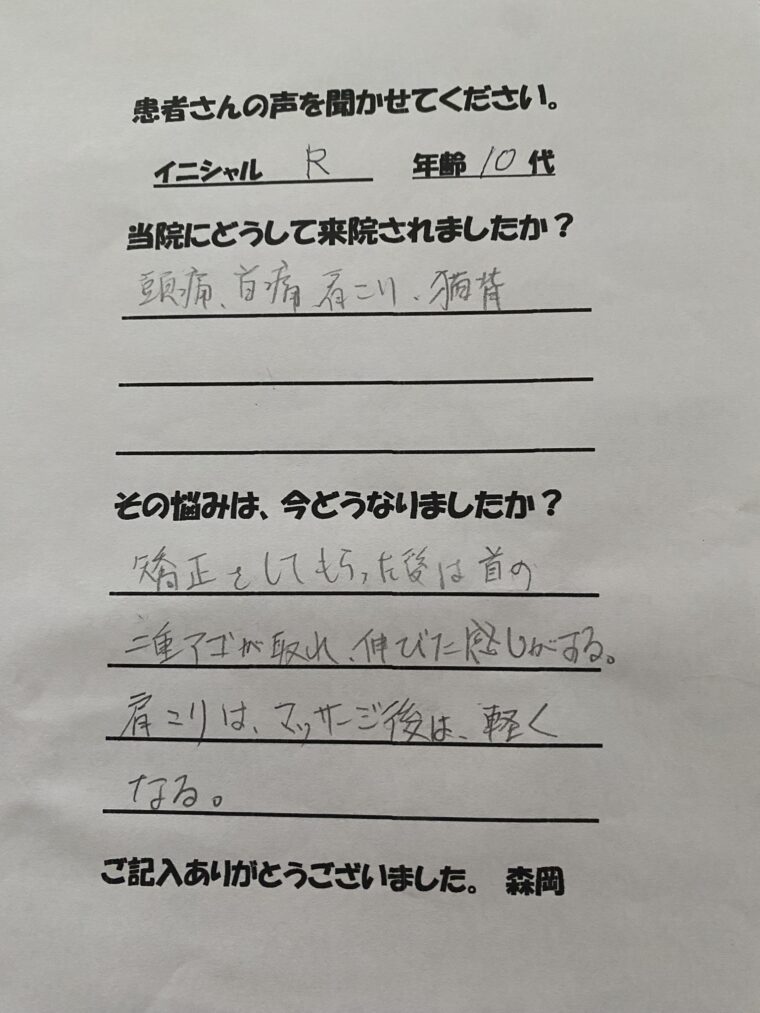 患者さんの声を聞かせてください。
イニシャル R 年齢 10 代
当院にどうして来院されましたか？
頭痛、首痛、肩こり、猫背
その悩みは、今どうなりましたか？
矯正をしてもらった後は首の
二重アゴが取れ、伸びた感じがする。
肩こりは、マッサージ後は、軽く
なる。
ご記入ありがとうございました。 森岡